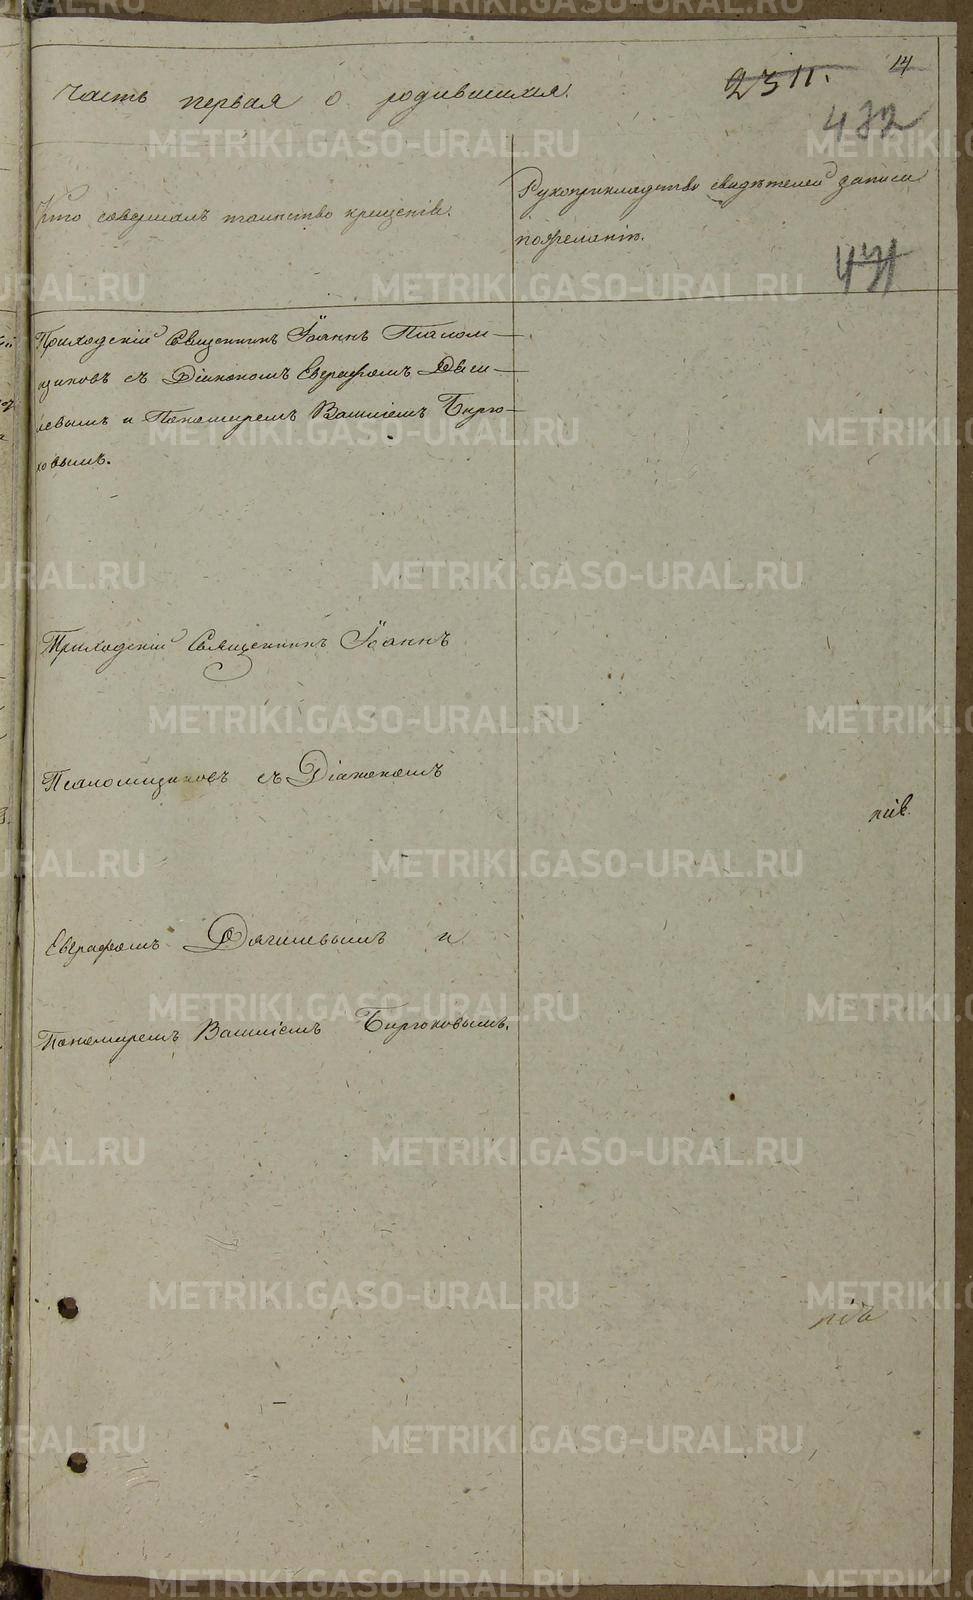 Часть первая о родившихся.
2311.
14
432
Кто совершалъ таинство крещенія.
Рукоприкладство свидѣтелей записи
по желанію.
471
Приходскій Священникъ Іоаннъ Псалом-
щиковъ съ Діакономъ Евграфомъ
и Пономаремъ Василіемъ Бирю-
ковымъ.
Приходскій Священникъ Іоаннъ
Псаломщиковъ съ Діакономъ
Евграфомъ Дягилевымъ и
Пономаремъ Василіемъ Бирюковымъ.
METRIKI.GASO-URAL.RU